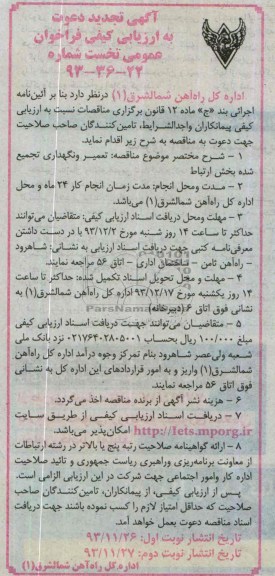 آگهی تجدید دعوت
به ارزیابی کیفی فراخوان
عمومی نخست شماره
۹۳-۳۶-۲۲
اداره کل راه‌آهن شمالشرق(۱) درنظر دارد بنا بر آئین‌نامه
اجرائی بند «ج» ماده ۱۲ قانون برگزاری مناقصات نسبت به ارزیابی
کیفی پیمانکاران واجدالشرایط، تامین‌کنندگان صاحب صلاحیت
جهت دعوت به مناقصه به شرح زیر اقدام نماید.
۱ – شرح مختصر موضوع مناقصه: تعمیر ونگهداری تجمیع
شده بخش ارتباط
۲ – مدت ومحل انجام: مدت زمان انجام کار ۲۴ ماه و محل
اداره کل راه‌آهن شمالشرق(۱) می‌باشد.
۳ – مهلت ومحل دریافت اسناد ارزیابی کیفی: متقاضیان می‌توانند
حداکثر تا ساعت ۱۴ روز شنبه مورخ ۹۳/۱۲/۲ با در دست داشتن
معرفی‌نامه کتبی جهت دریافت اسناد ارزیابی به نشانی: شاهرود
– راه‌آهن ثامن – ساختمان اداری – اتاق ۵۶ مراجعه نمایند.
۴ – مهلت و محل تحویل اسناد تکمیل شده: حداکثر تا ساعت
۱۴ روز یکشنبه مورخ ۹۳/۱۲/۱۷ اداره کل راه‌آهن شمالشرق(۱) به
نشانی فوق اتاق ۶ (دبیرخانه)
۵ – متقاضیان می‌توانند جهت دریافت اسناد ارزیابی کیفی
مبلغ ۱۰۰/۰۰۰ ریال بحساب ۲۱۷۶۴۰۲۸۰۵۰۰۱ نزد بانک ملی
شعبه ولی‌عصر شاهرود بنام تمرکز وجوه درآمد اداره کل راه‌آهن
شمالشرق(۱) واریز و به امور قراردادهای این اداره کل به نشانی
فوق اتاق ۵۶ مراجعه نمایند.
۶ – هزینه نشر آگهی از برنده مناقصه اخذ می‌گردد.
۷ – دریافت اسناد ارزیابی کیفی از طریق سایت
http://iets.mporg.ir امکان‌پذیر می‌باشد.
۸ – ارائه گواهینامه صلاحیت رتبه پنج یا بالاتر در رشته ارتباطات
از معاونت برنامه‌ریزی وراهبری ریاست جمهوری و تائید صلاحیت
اداره کار وامور اجتماعی جهت شرکت در این ارزیابی الزامی است.
پس از ارزیابی کیفی، از پیمانکاران، تامین‌کنندگان صاحب
صلاحیت که حداقل امتیاز لازم را کسب نموده باشند جهت دریافت
اسناد مناقصه دعوت بعمل خواهد آمد.
تاریخ انتشار نوبت اول: ۹۳/۱۱/۲۶
تاریخ انتشار نوبت دوم: ۹۳/۱۱/۲۷
اداره کل راه‌آهن شمالشرق (۱)